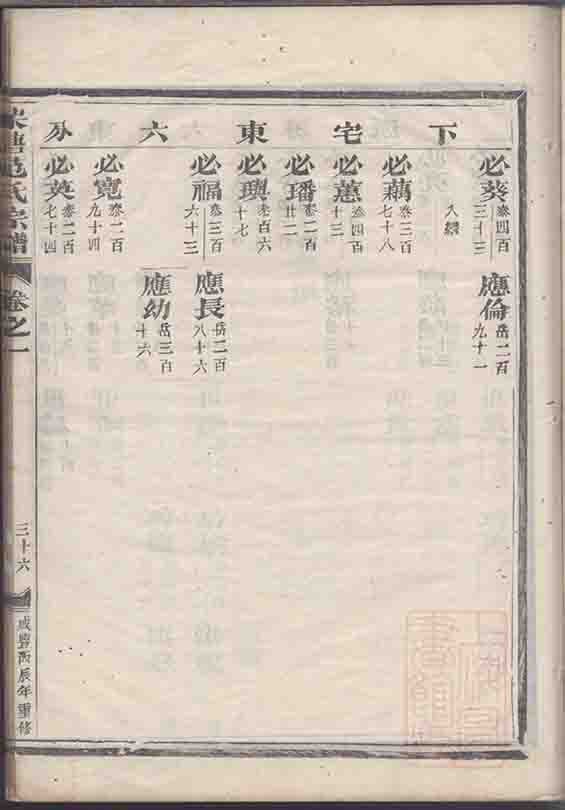 下宅東六房
必葵 泰四百三十三
應倫 岳二百九十一
入繼
必藕 泰三百七十八
必蕙 泰四百十三
必璠 泰二百廿二
必璵 泰百六十七
必福 泰三百六十三
應長 岳二百八十六
應幼 岳三百十六
必寬 泰二百九十四
必英 泰二百七十四
范氏宗譜
卷之一
三十六
咸豐丙辰年重修